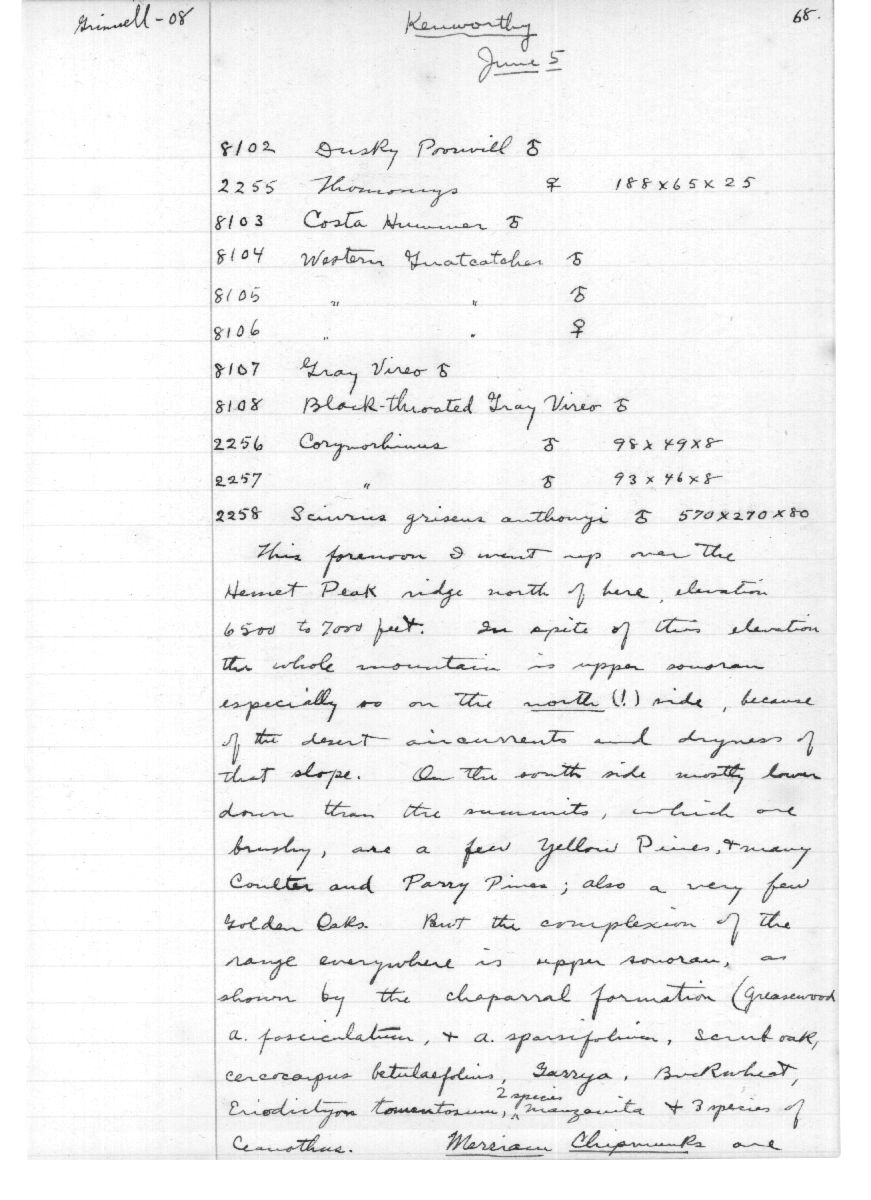 Grinnell - 08
Kenworthy
68.
June 5
8102 Dusky Poorwill ♂
2255 Thomomys ♀ 188 x 65 x 25
8103 Costa Hummer ♂
8104 Western Gnatcatcher ♂
8105 " " ♂
8106 " " ♀
8107 Gray Vireo ♂
8108 Black-throated Gray Vireo ♂
2256 Corynorhinus ♂ 98 x 49 x 8
2257 " ♂ 93 x 46 x 8
2258 Sciurus griseus anthonyi ♂ 570 x 270 x 80
This forenoon I went up over the
Hemet Peak ridge north of here, elevation
6500 to 7000 feet. In spite of this elevation
the whole mountain is upper sonoran
especially so on the north (!) side, because
of the desert aircurrents and dryness of
that slope. On the south side mostly lower
down than the summits, which are
brushy, are a few Yellow Pines, & many
Coulter and Parry Pines; also a very few
Golden Oaks. But the complexion of the
range everywhere is upper sonoran, as
shown by the chaparral formation (Greasewood
A. fasciculatum, & A. sparsifolium, Scrub oak,
cercocarpus betulaefolius, Garrya, Buckwheat,
Eriodictyon tomentosum, ^2 species manzanita & 3 species of
Ceanothus. Merriam Chipmunks are